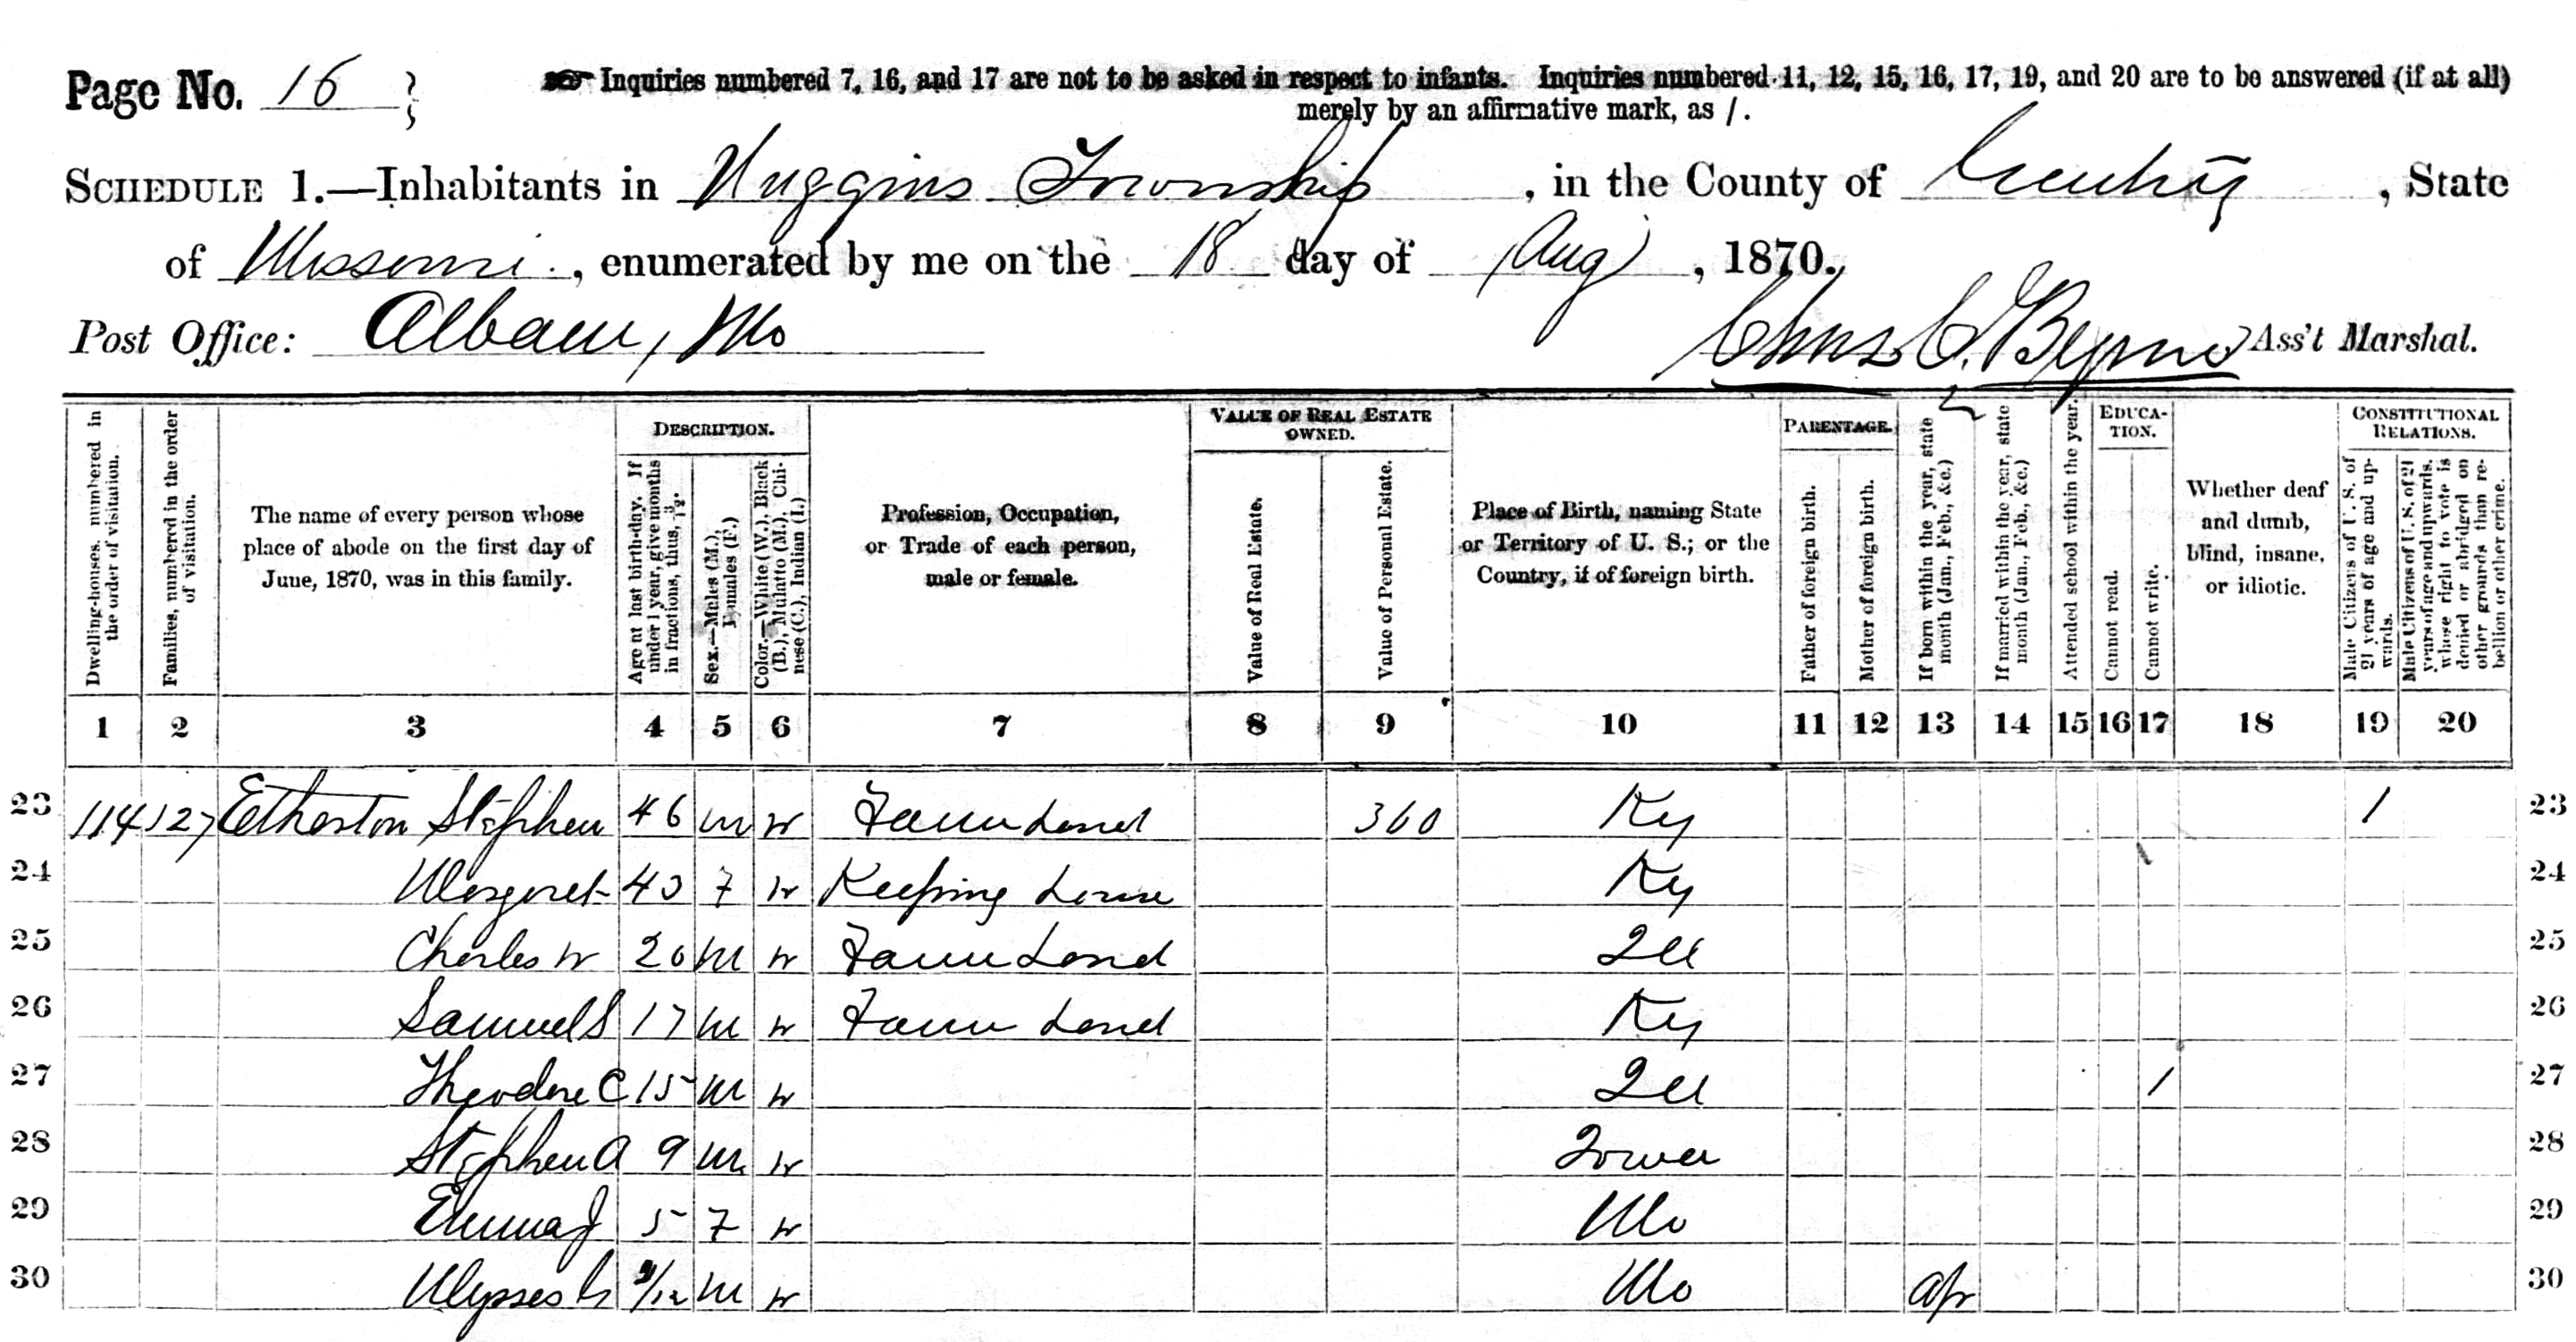 Page No. 16
Inquiries numbered 7, 16, and 17 are not to be asked in respect to infants. Inquiries numbered 11, 12, 15, 16, 17, 19, and 20 are to be answered (if at all)
merely by an affirmative mark, as /.
SCHEDULE 1.—Inhabitants in Huggins Township, in the County of Gentry, State
of Missouri., enumerated by me on the 18 day of Aug, 1870.
Post Office: Albany, Mo Chas C. Byrne Ass't Marshal.
Dwelling-houses, numbered in the order of visitation.
Families, numbered in the order of visitation.
The name of every person whose place of abode on the first day of June, 1870, was in this family.
DESCRIPTION.
Age at last birth-day. If under 1 year, give months in fractions, thus, 3/12.
Sex.—Males (M.), Females (F.)
Color.—White (W.), Black (B.), Mulatto (M.), Chinese (C.), Indian (I.)
Profession, Occupation, or Trade of each person, male or female.
VALUE OF REAL ESTATE OWNED.
Value of Real Estate.
Value of Personal Estate.
Place of Birth, naming State or Territory of U. S.; or the Country, if of foreign birth.
PARENTAGE.
Father of foreign birth.
Mother of foreign birth.
If born within the year, state month (Jan., Feb., &c.)
If married within the year, state month (Jan., Feb., &c.)
Attended school within the year.
EDUCATION.
Cannot read.
Cannot write.
Whether deaf and dumb, blind, insane, or idiotic.
CONSTITUTIONAL RELATIONS.
Male Citizens of U. S. of 21 years of age and upwards.
Male Citizens of U. S. of 21 years of age and upwards, whose right to vote is denied or abridged on other grounds than rebellion or other crime.
1 2 3 4 5 6 7 8 9 10 11 12 13 14 15 16 17 18 19 20
23 114 127 Etherton Stephen 46 m w Farm Hand 360 Ky 1 23
24 Margaret 43 F w Keeping House Ky 24
25 Charles W 20 M w Farm Hand Ill 25
26 Samuel S 17 M w Farm Hand Ky 26
27 Theodore C 15 M w Ill / 27
28 Stephen A 9 M w Iowa 28
29 Emma J 5 F w Mo 29
30 Ulysses G /12 M w Mo Apr 30